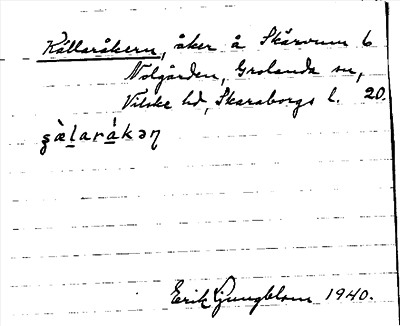 Källaråkern, åker å Skårvum 6
Nolgården, Grolanda sn,
Vilske hd, Skaraborgs l. 20.
ʂὰlarákəɳ
Erik Ljungblom 1940.